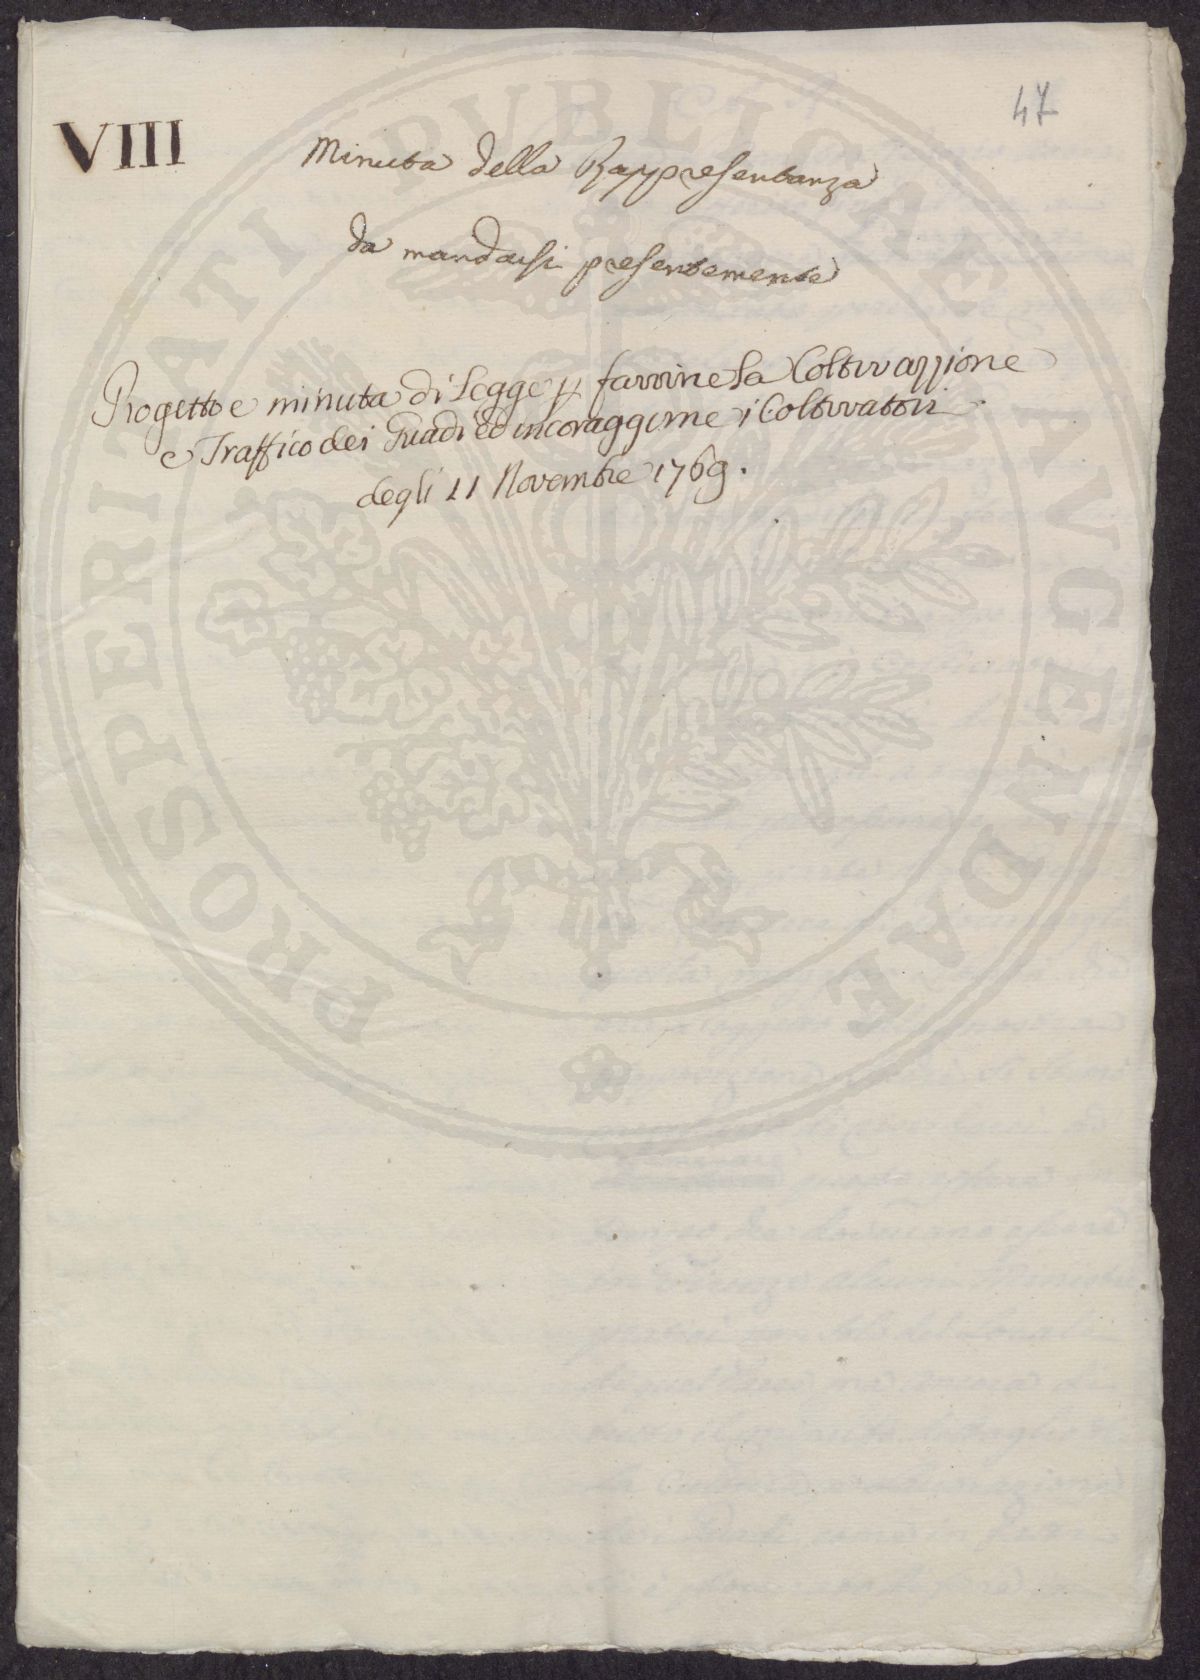 47
VIII
Minuta della Rappresentanza
da mandarsi presentemente
Progetto e minuta di Legge p farvine la Coltivazzione
e Traffico dei Guadi ed incoraggirne i Coltivatori
degli 11 Novembre 1769.
PROSPERITATI PVBLICAE AVGENDAE